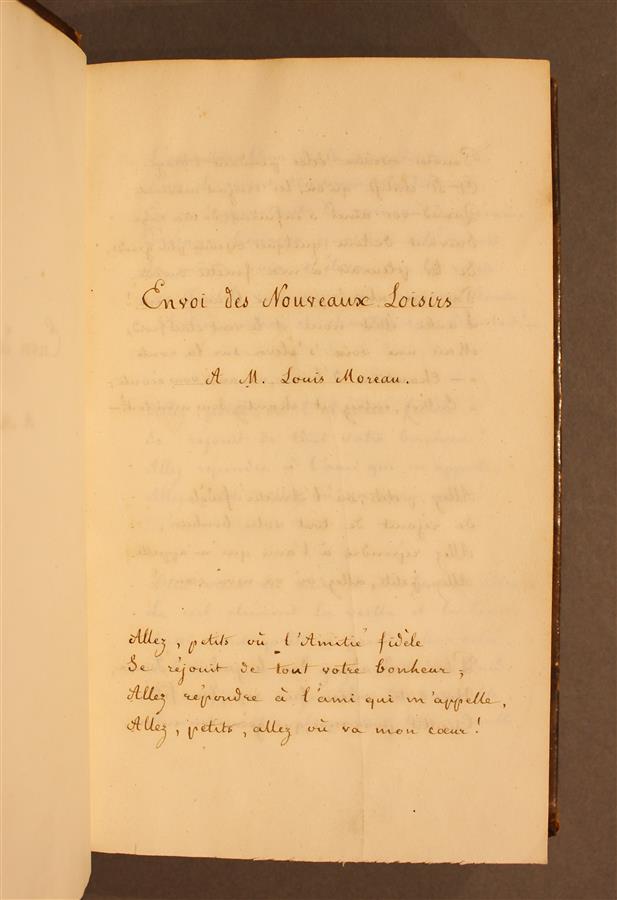 Envoi des Nouveaux Loisirs
A M. Louis Moreau.
Allez, petits où l'Amitié fidèle
Se réjouit de tout votre bonheur ;
Allez répondre à l'ami qui m'appelle,
Allez, petits, allez où va mon cœur !